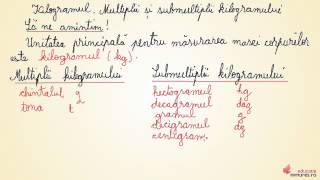 Kilogramul. Multiplii și submultiplii kilogramului
Să ne amintim!
Unitatea principală pentru măsurarea masei corpurilor
este kilogramul (kg).
Multiplii kilogramului
chintalul q
tona t
Submultiplii kilogramului
hectogramul hg
decagramul dag
gramul g
decigramul dg
centigram